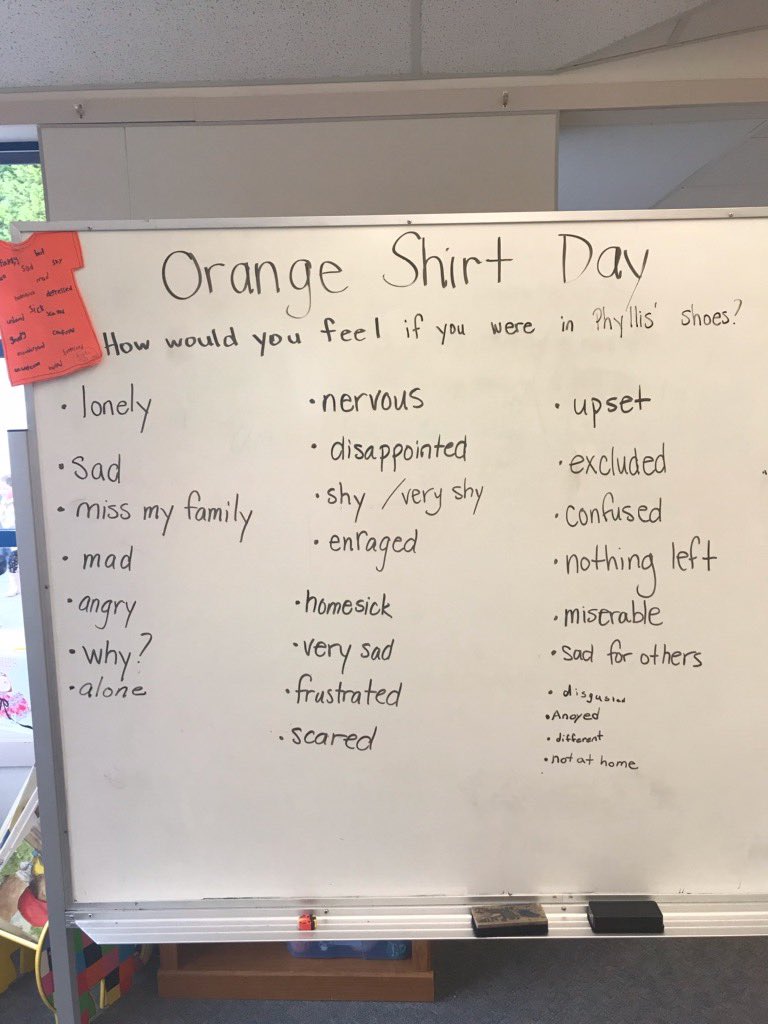 Orange Shirt Day
How would you feel if you were in Phyllis' shoes?
• lonely
• sad
• miss my family
• mad
• angry
• why?
• alone
• nervous
• disappointed
• shy / very shy
• enraged
• homesick
• very sad
• frustrated
• scared
• upset
• excluded
• confused
• nothing left
• miserable
• sad for others
• disgusted
• Anoyed
• different
• not at home
sad shy
mad
depressed
sick